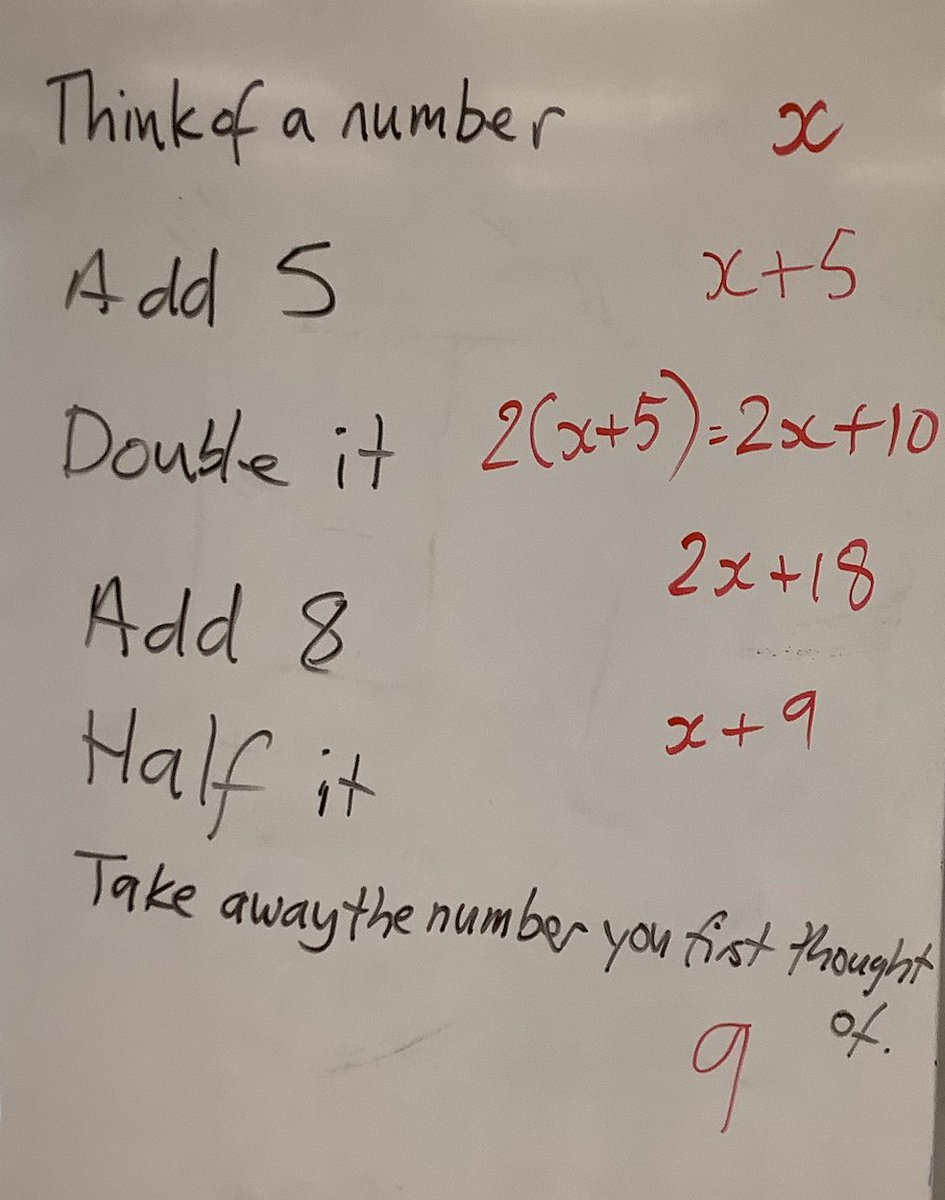 Think of a number x
Add 5 x+5
Double it 2(x+5)=2x+10
Add 8 2x+18
Half it x+9
Take away the number you first thought
of.
9